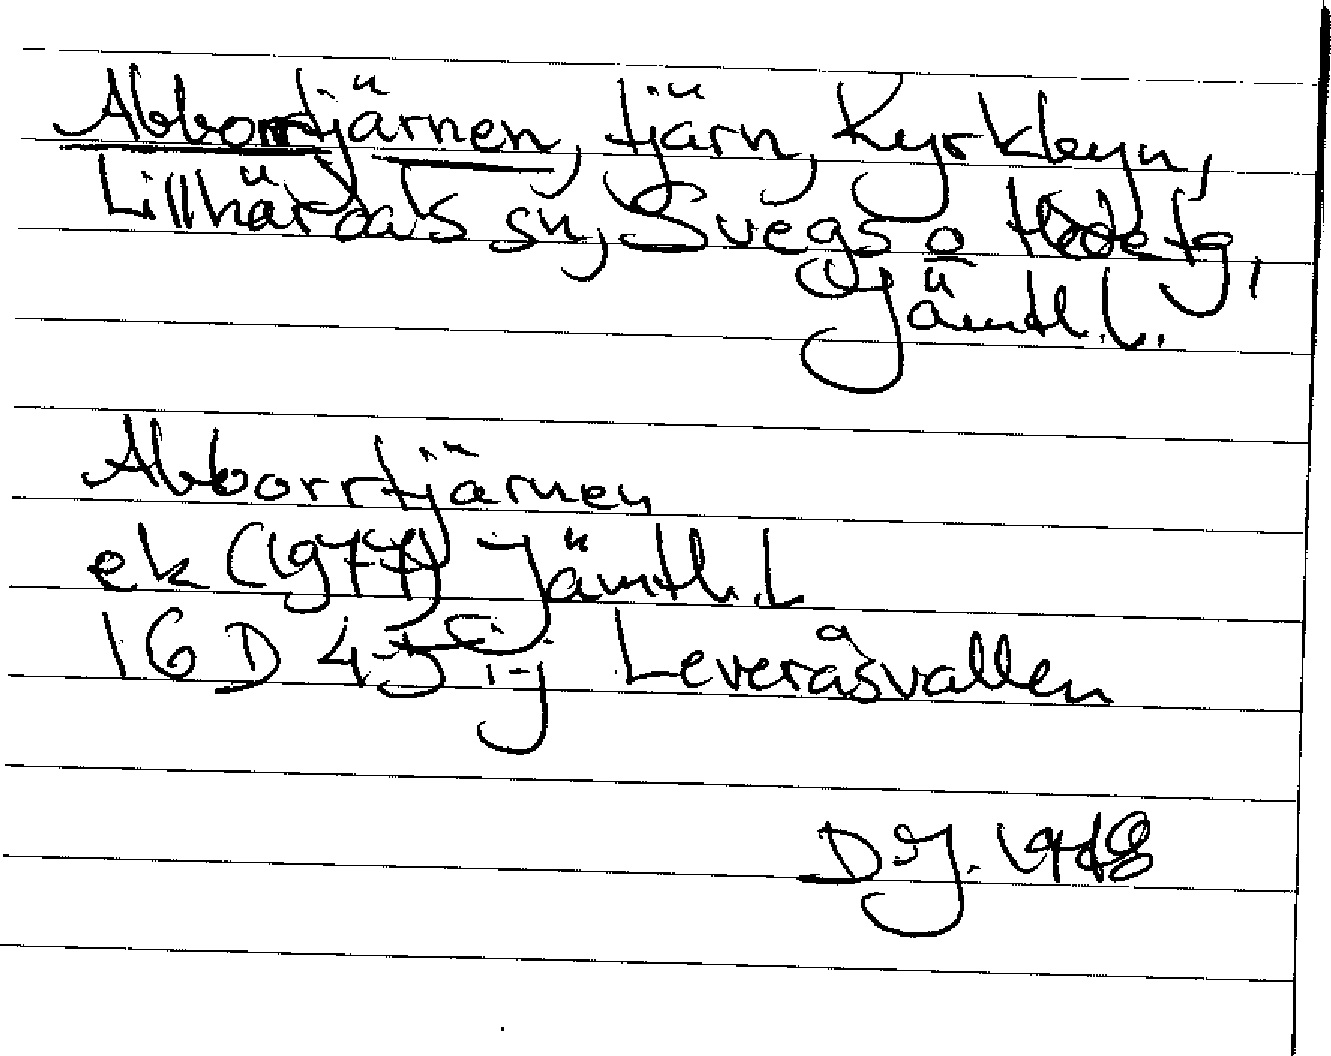 Abborrtjärnen, tjärn, Kyrkbyn,
Lillhärdals sn, Svegs o Hede tg,
Jämtl. l.
Abborrtjärnen
ek (1977) Jämtl. L
16 D 45 i-j Leveråsvallen
DJ. 1978